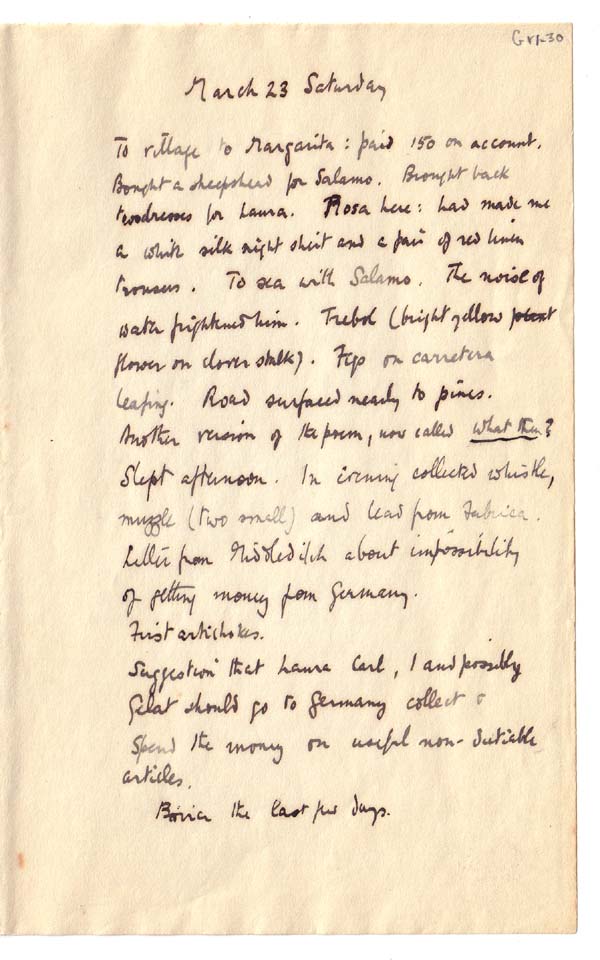 Grv-30
March 23 Saturday
To village to Margarita: paid 150 on account.
Bought a sheepshead for Salamo. Brought back
two dresses for Laura. Rosa here: had made me
a white silk night shirt and a pair of red linen
trousers. To sea with Salamo. The noise of
water frightened him. Trebol (bright yellow
flower on clover stalk). Figs on carretera
leafing. Road surfaced nearly to pines.
Another version of the poem, now called What Then?
Slept afternoon. In evening collected whistle,
muzzle (two small) and lead from Fabrica.
Letter from Middleditch about impossibility
of getting money from Germany.
First artichokes.
Suggestion that Laura Carl, I and possibly
Gelat should go to Germany collect &
spend the money on useful non-dutiable
articles.
the last few days.